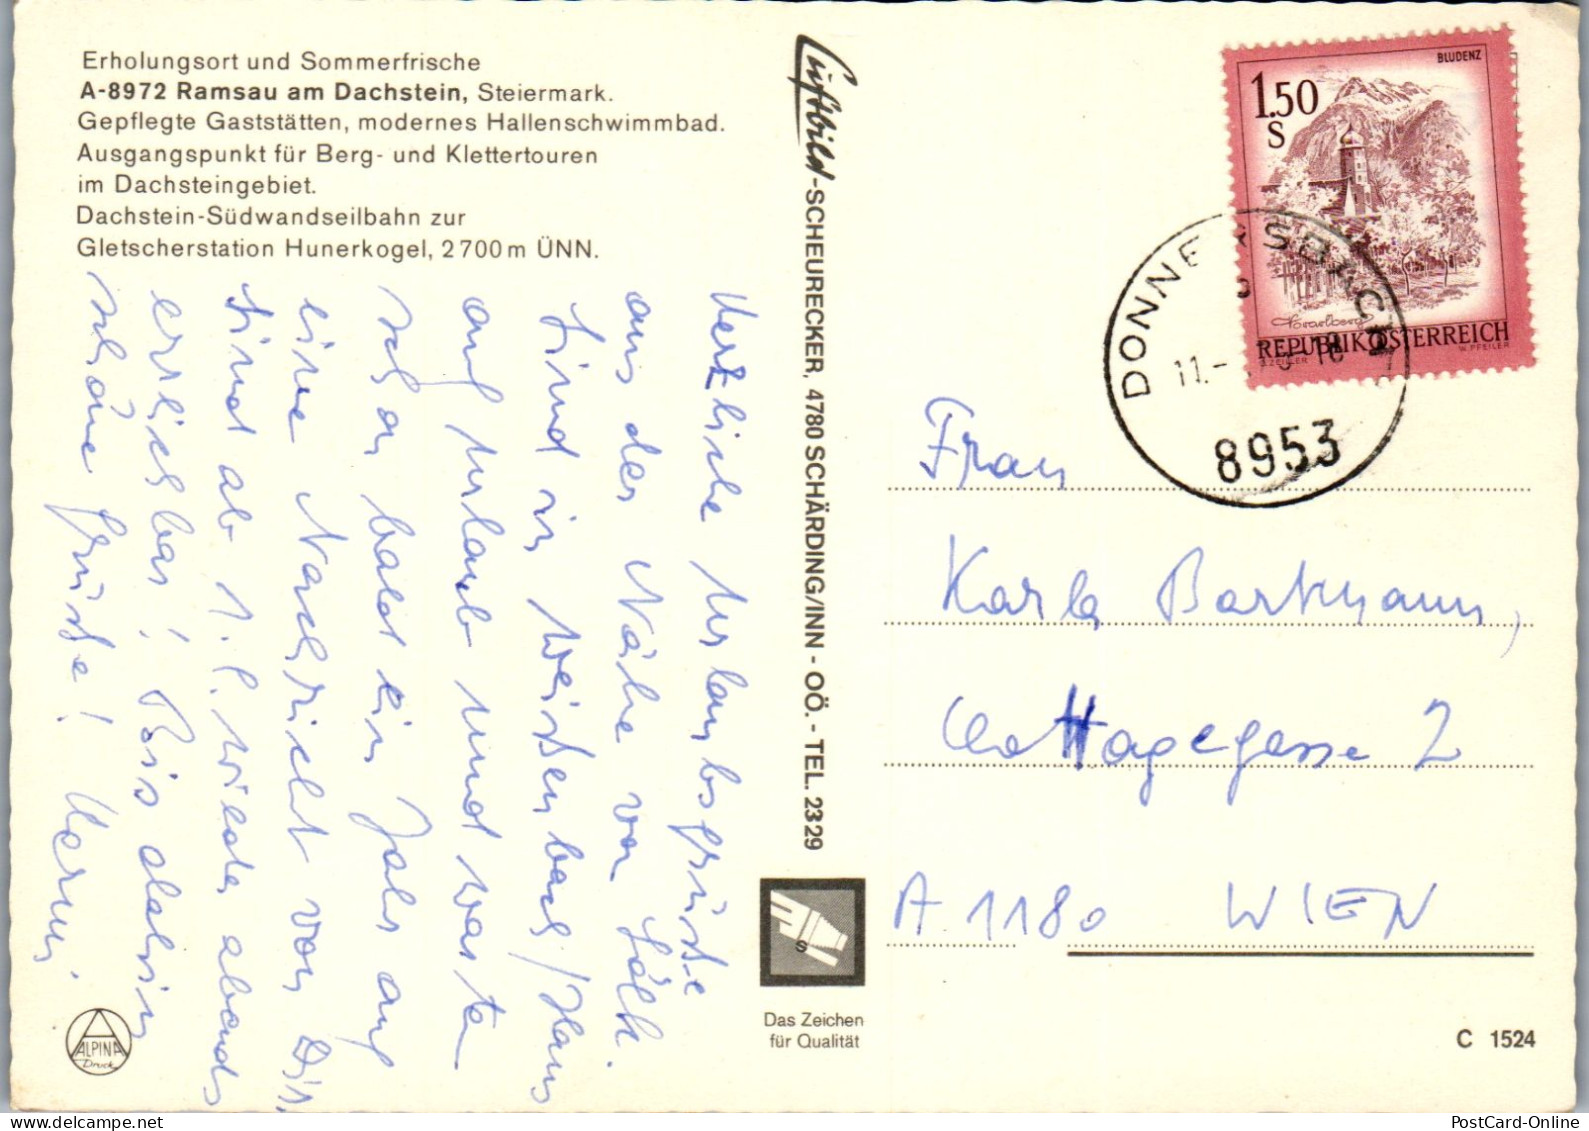 Erholungsort und Sommerfrische
A-8972 Ramsau am Dachstein, Steiermark.
Gepflegte Gaststätten, modernes Hallenschwimmbad.
Ausgangspunkt für Berg- und Klettertouren
im Dachsteingebiet.
Dachstein-Südwandseilbahn zur
Gletscherstation Hunerkogel, 2700m ÜNN.
Herzliche Urlaubsgrüße
aus der Nähe von Sölk.
Sind in Weißenbach/Haus
auf Urlaub und warte
schon bald ein Jahr auf
eine Nachricht von Dir.
Sind ab 1.8. wieder abends
erreichbar! Bis dahin
schöne Grüße!
ALPINA
Druck
Luftbild-SCHEURECKER, 4780 SCHÄRDING/INN - OÖ. - TEL. 2329
S
Das Zeichen
für Qualität
BLUDENZ
1.50
S
Vorarlberg
REPUBLIK ÖSTERREICH
W. PFEILER
DONNERSBACH
11.- 18
8953
Frau
Karla Bartmann,
Cottagegasse 2
A 1180 WIEN
C 1524